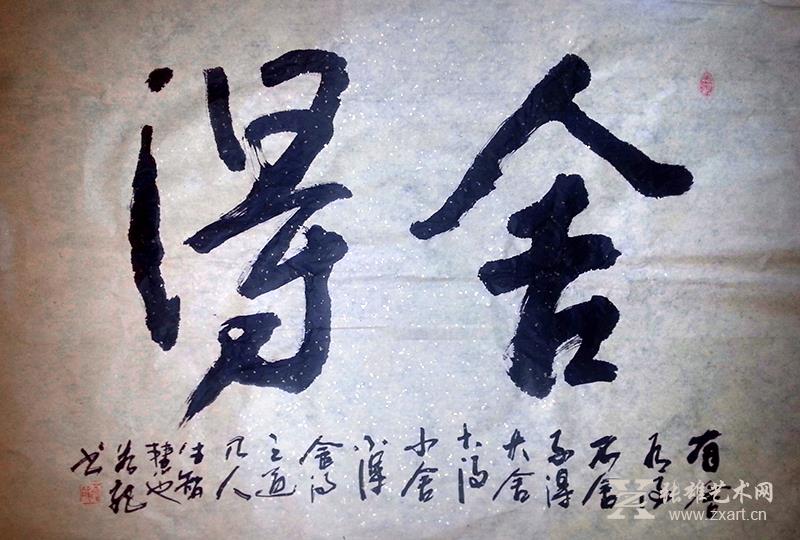 舍得
有舍
有得
不舍
不得
大舍
大得
小舍
小得
舍得
之道
凡人
生智
慧也
龙
书
张雄艺术网
www.zxart.cn